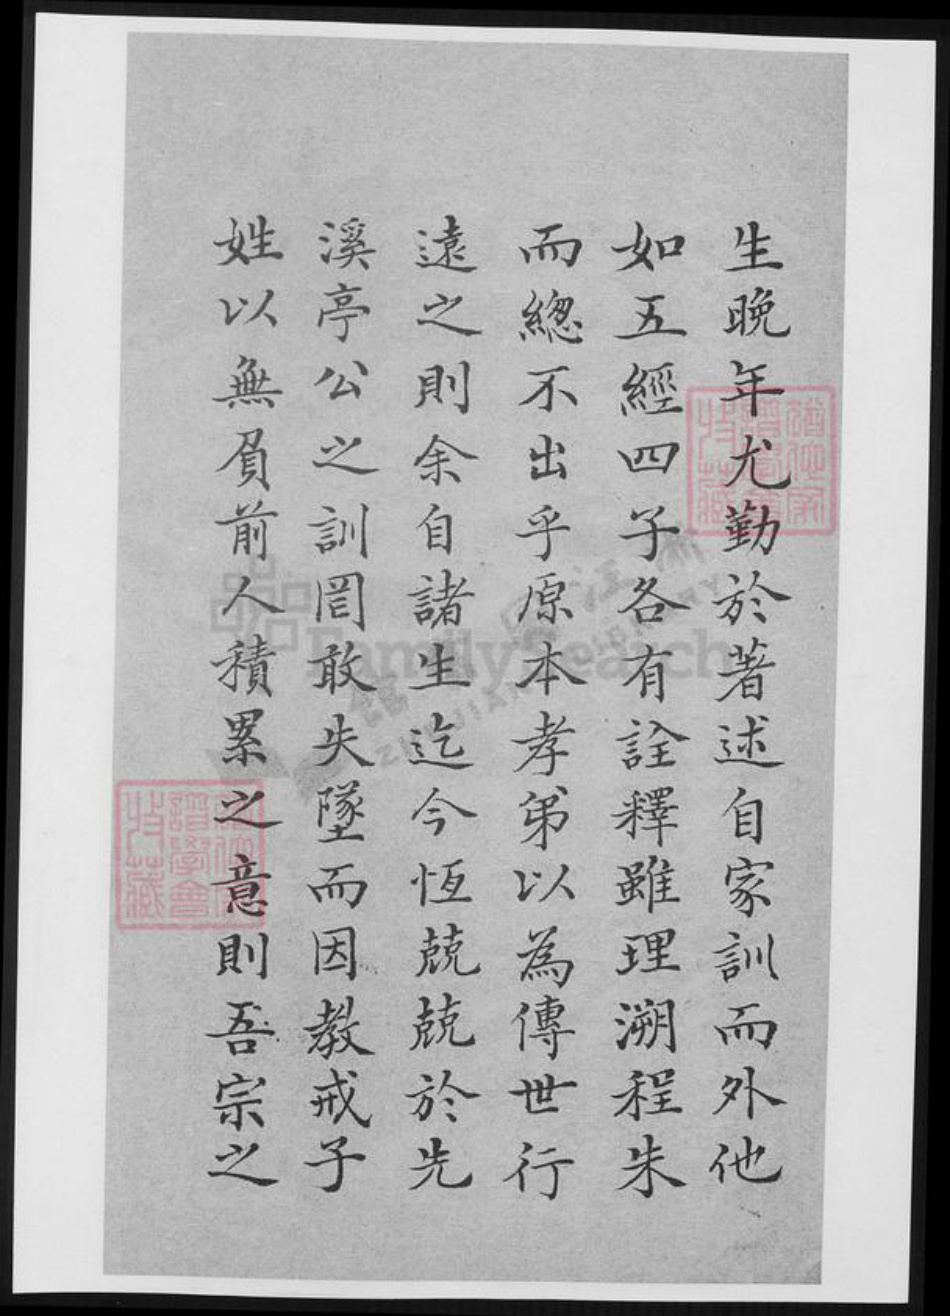 生晚年尤勤於著述自家訓而外他
如五經四子各有詮釋雖理溯程朱
而總不出乎原本孝弟以為傳世行
遠之則余自諸生迄今恆兢兢於先
溪亭公之訓罔敢失墜而因教戒子
姓以無負前人積累之意則吾宗之
FamilySearch